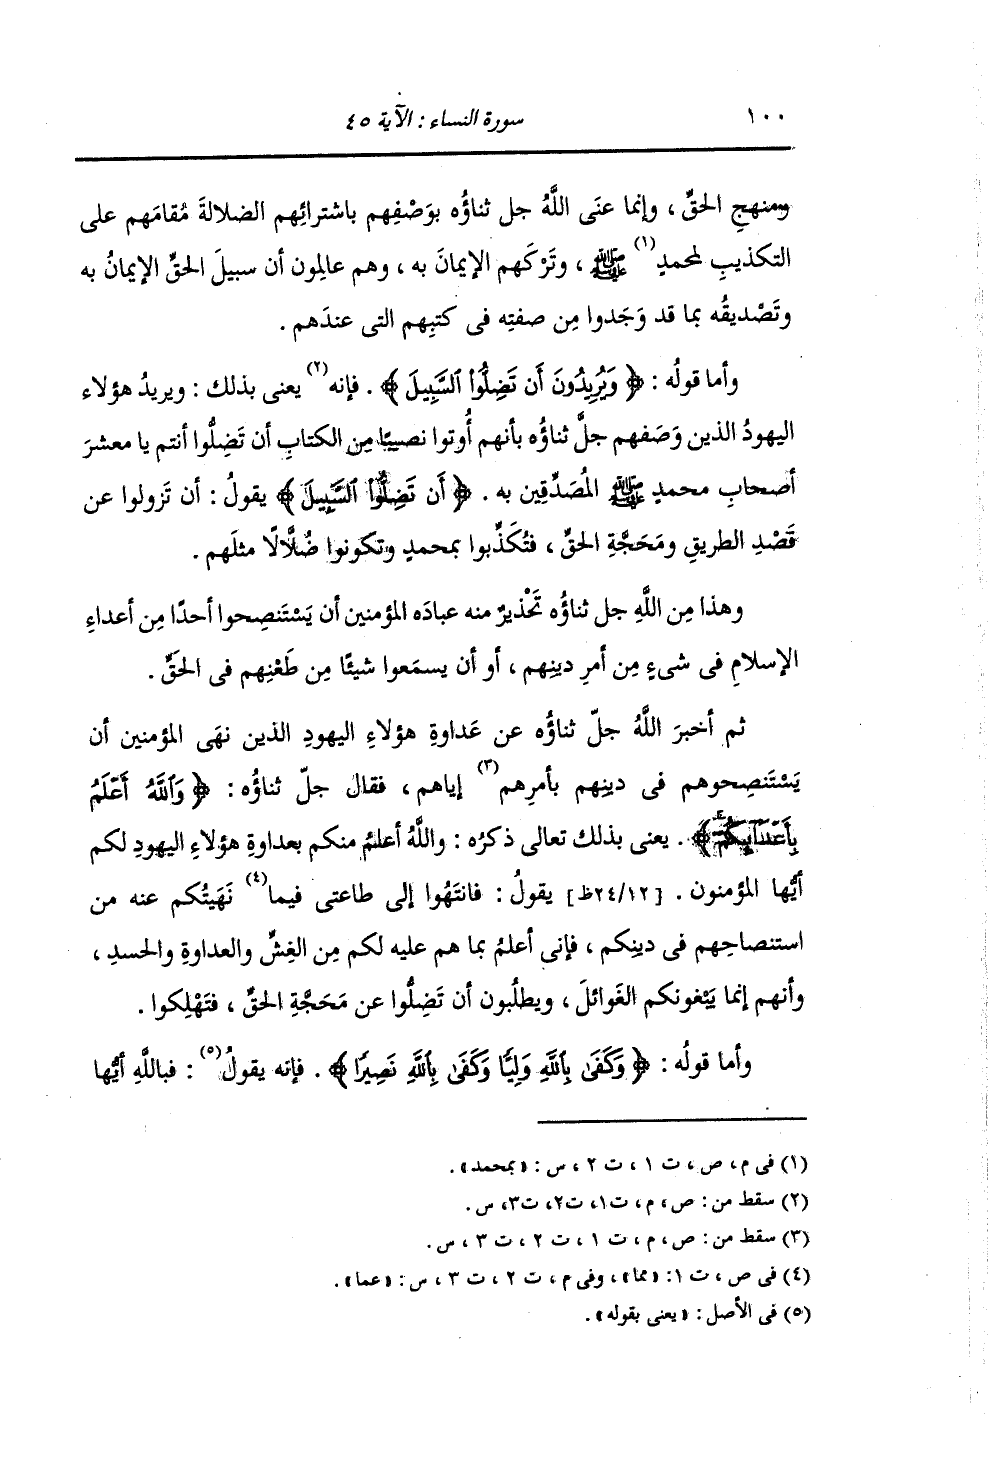 ١٠٠ سورة النساء : الآية ٤٥
ومنهجِ الحقِّ ، وإنما عنَى اللَّهُ جل ثناؤُه بوَصْفِهم باشترائِهم الضلالةَ مُقامَهم على
التكذيبِ لمحمدٍ (١) ﷺ ، وتَرْكَهم الإيمانَ به ، وهم عالِمون أن سبيلَ الحقِّ الإيمانُ به
وتَصْديقُه بما قد وَجَدوا مِن صفتِه فى كتبِهم التى عندَهم .
وأما قولُه : ﴿ وَيُرِيدُونَ أَن تَضِلُّوا۟ ٱلسَّبِيلَ ﴾ . فإنه (٢) يعنى بذلك : ويريدُ هؤلاء
اليهودُ الذين وَصَفهم جلَّ ثناؤُه بأنهم أُوتوا نصيبًا مِن الكتابِ أن تَضِلُّوا أنتم يا معشرَ
أصحابِ محمدٍ ﷺ المُصَدِّقِين به . ﴿ أَن تَضِلُّوا۟ ٱلسَّبِيلَ ﴾ يقولُ : أن تَزولوا عن
قَصْدِ الطريقِ ومَحَجَّةِ الحقِّ ، فتُكَذِّبوا بمحمدٍ وتكونوا ضُلَّالًا مثلَهم .
وهذا مِن اللَّهِ جل ثناؤُه تَحْذيرٌ منه عبادَه المؤمنين أن يَسْتَنصِحوا أحدًا مِن أعداءِ
الإسلامِ فى شىءٍ مِن أمرِ دينِهم ، أو أن يسمَعوا شيئًا مِن طَعْنِهم فى الحَقِّ .
ثم أخبرَ اللَّهُ جلّ ثناؤُه عن عَداوةِ هؤلاءِ اليهودِ الذين نهَى المؤمنين أن
يَسْتَنصِحوهم فى دينِهم بأمرِهم (٣) إياهم ، فقال جلّ ثناؤُه : ﴿ وَٱللَّهُ أَعْلَمُ
بِأَعْدَآئِكُمْ ﴾ . يعنى بذلك تعالى ذكرُه : واللَّهُ أعلمُ منكم بعداوةِ هؤلاءِ اليهودِ لكم
أيُّها المؤمنون . [٢٤/١٢ظ] يقولُ : فانتَهُوا إلى طاعتى فيما (٤) نَهَيتُكم عنه من
استنصاحِهم فى دينِكم ، فإنى أعلمُ بما هم عليه لكم مِن الغِشِّ والعداوةِ والحسدِ ،
وأنهم إنما يَبْغونكم الغَوائلَ ، ويطلُبون أن تَضِلُّوا عن مَحَجَّةِ الحقِّ ، فتَهْلِكوا .
وأما قولُه : ﴿ وَكَفَىٰ بِٱللَّهِ وَلِيًّا وَكَفَىٰ بِٱللَّهِ نَصِيرًا ﴾ . فإنه يقولُ (٥) : فباللَّهِ أيُّها
(١) فى م، ص ، ت ١ ، ت ٢ ، س : «بمحمد» .
(٢) سقط من : ص، م، ت١، ت٢، ت٣، س .
(٣) سقط من : ص، م ، ت ١ ، ت ٢ ، ت ٣ ، س .
(٤) فى ص ، ت ١: «مما» ، وفى م ، ت ٢ ، ت ٣ ، س : «عما» .
(٥) فى الأصل : «يعنى بقوله» .